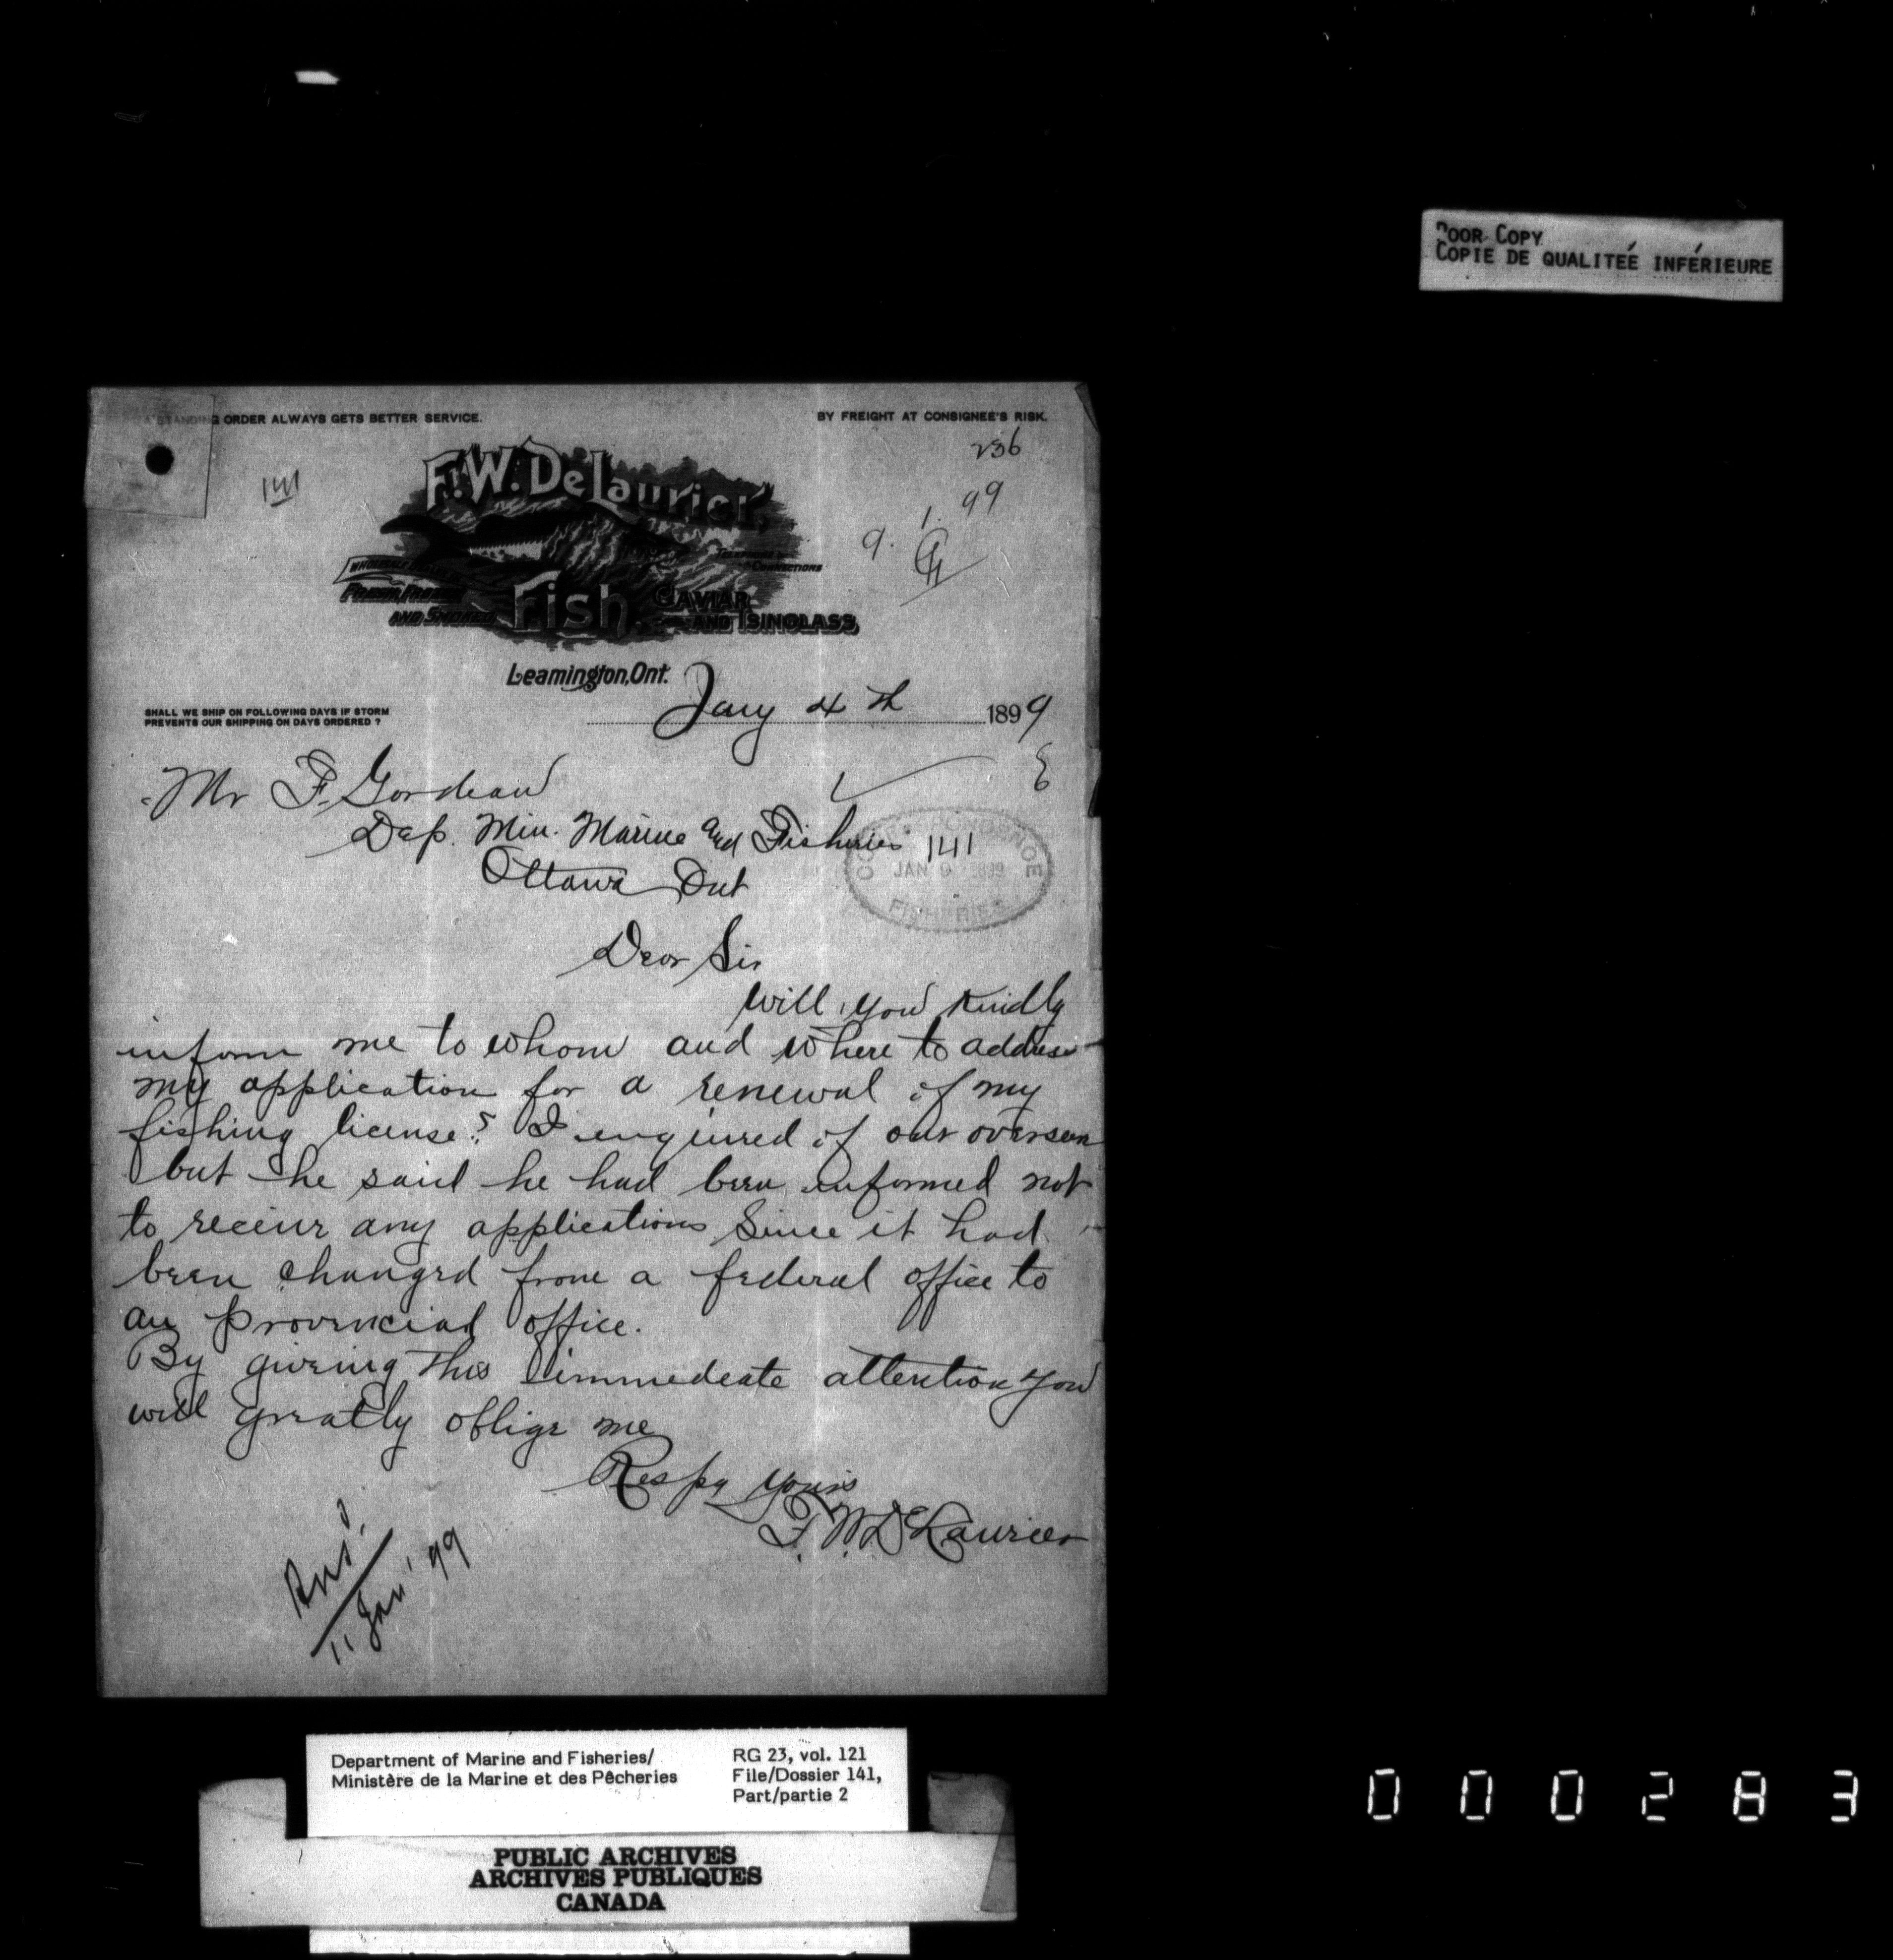 POOR COPY
COPIE DE QUALITEÉ INFÉRIEURE
A STANDING ORDER ALWAYS GETS BETTER SERVICE.
BY FREIGHT AT CONSIGNEE'S RISK.
236
141
9. 1. 99
F.W. DeLaurier,
TELEPHONE CONNECTIONS
WHOLESALE
FRESH, FROZEN
AND SMOKED
Fish
CAVIAR
AND ISINGLASS,
Leamington, Ont.
Jany 4th 1899
SHALL WE SHIP ON FOLLOWING DAYS IF STORM
PREVENTS OUR SHIPPING ON DAYS ORDERED ?
Mr F. Gordeau
Dep. Min. Marine and Fisheries
Ottawa Ont
CORRESPONDENCE
141
JAN 9 1899
FISHERIES
Dear Sir
Will you kindly
inform me to whom and where to address
my application for a renewal of my
fishing license? I enquired of our overseer
but he said he had been informed not
to receive any applications since it had
been changed from a federal office to
an provencial office.
By giveing this immedeate attention you
will greatly oblige me
Respy yours
F. W. DeLaurier
Ansd.
11 Jan' 99
Department of Marine and Fisheries/
Ministère de la Marine et des Pêcheries
RG 23, vol. 121
File/Dossier 141,
Part/partie 2
PUBLIC ARCHIVES
ARCHIVES PUBLIQUES
CANADA
000283